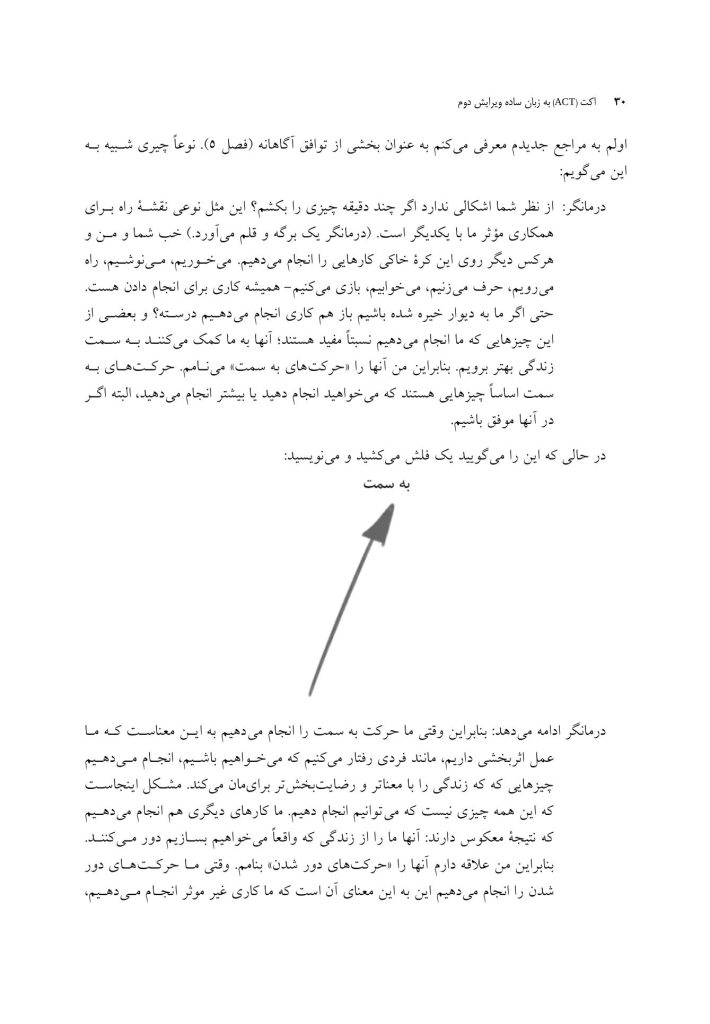 ۳۰ اکت (ACT) به زبان ساده ویرایش دوم
اولم به مراجع جدیدم معرفی می‌کنم به عنوان بخشی از توافق آگاهانه (فصل ۵). نوعاً چیزی شبیه به
این می‌گویم:
درمانگر: از نظر شما اشکالی ندارد اگر چند دقیقه چیزی را بکشم؟ این مثل نوعی نقشهٔ راه برای
همکاری مؤثر ما با یکدیگر است. (درمانگر یک برگه و قلم می‌آورد.) خب شما و من و
هرکس دیگر روی این کرهٔ خاکی کارهایی را انجام می‌دهیم. می‌خوریم، می‌نوشیم، راه
می‌رویم، حرف می‌زنیم، می‌خوابیم، بازی می‌کنیم- همیشه کاری برای انجام دادن هست.
حتی اگر ما به دیوار خیره شده باشیم باز هم کاری انجام می‌دهیم درسته؟ و بعضی از
این چیزهایی که ما انجام می‌دهیم نسبتاً مفید هستند؛ آنها به ما کمک می‌کنند به سمت
زندگی بهتر برویم. بنابراین من آنها را «حرکت‌های به سمت» می‌نامم. حرکت‌های به
سمت اساساً چیزهایی هستند که می‌خواهید انجام دهید یا بیشتر انجام می‌دهید، البته اگر
در آنها موفق باشیم.
در حالی که این را می‌گویید یک فلش می‌کشید و می‌نویسید:
به سمت
درمانگر ادامه می‌دهد: بنابراین وقتی ما حرکت به سمت را انجام می‌دهیم به این معناست که ما
عمل اثربخشی داریم، مانند فردی رفتار می‌کنیم که می‌خواهیم باشیم، انجام می‌دهیم
چیزهایی که که زندگی را با معناتر و رضایت‌بخش‌تر برای‌مان می‌کند. مشکل اینجاست
که این همه چیزی نیست که می‌توانیم انجام دهیم. ما کارهای دیگری هم انجام می‌دهیم
که نتیجهٔ معکوس دارند: آنها ما را از زندگی که واقعاً می‌خواهیم بسازیم دور می‌کنند.
بنابراین من علاقه دارم آنها را «حرکت‌های دور شدن» بنامم. وقتی ما حرکت‌های دور
شدن را انجام می‌دهیم این به این معنای آن است که ما کاری غیر موثر انجام می‌دهیم،